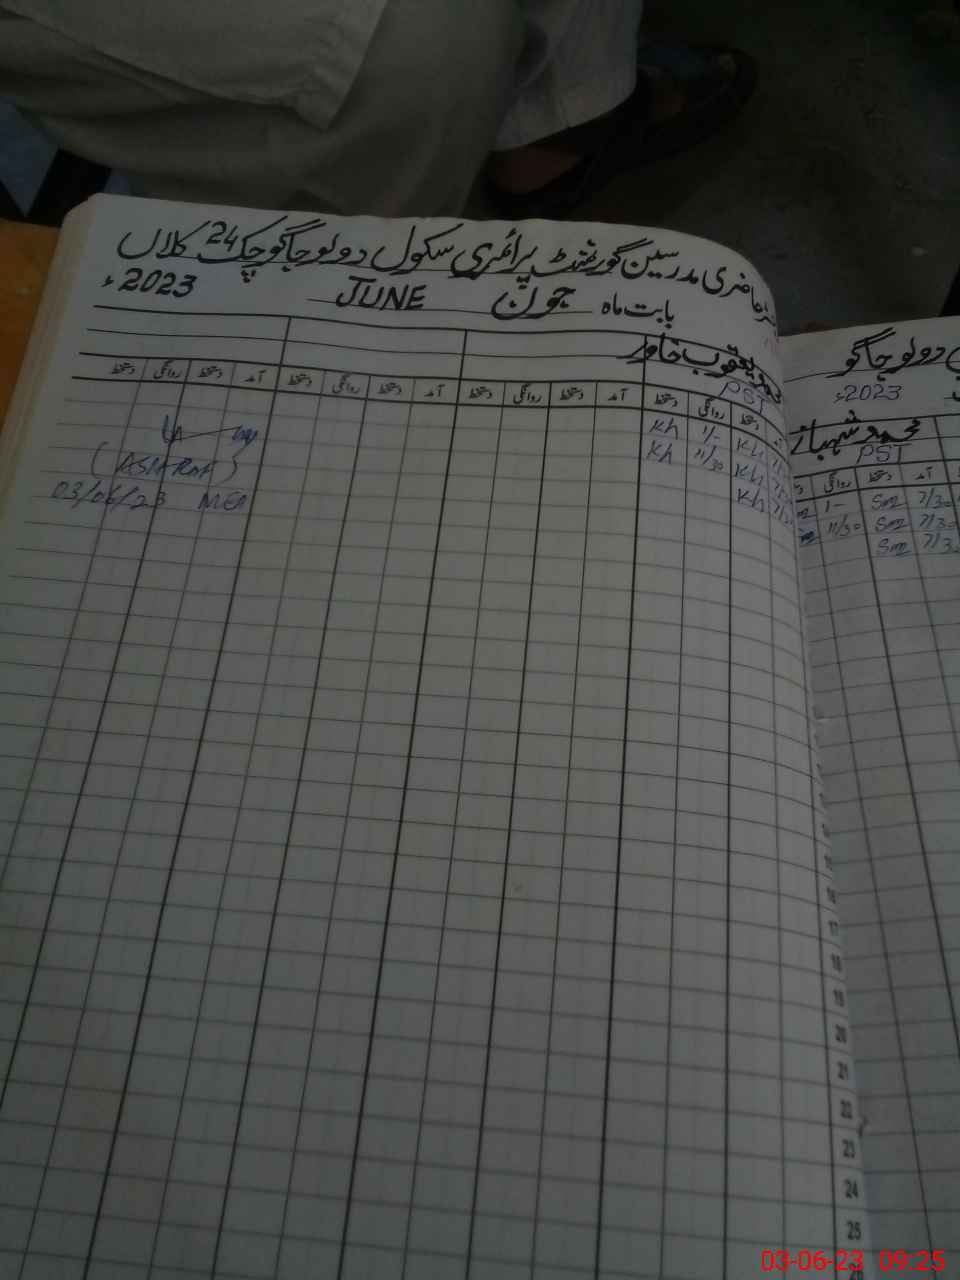 حاضری مدرسین گورنمنٹ پرائمری سکول دولوجاگو چک 24 کلاں
بابت ماہ جون JUNE 2023ء
یعقوب خاور
PST
آمد دستخط روانگی دستخط آمد دستخط روانگی دستخط آمد دستخط روانگی دستخط آمد دستخط روانگی دستخط
Kh 1/- Kh
Kh 11/30 Kh
Kh
(ASHRAF)
03/06/23 MEA
16
17
18
19
20
21
22
23
24
25
دولوجاگو
2023ء
محمد شہباز
PST
آمد دستخط روانگی
7/30 Smz 1-
7/30 Smz 11/30
7/30 Smz
03-06-23 09:25